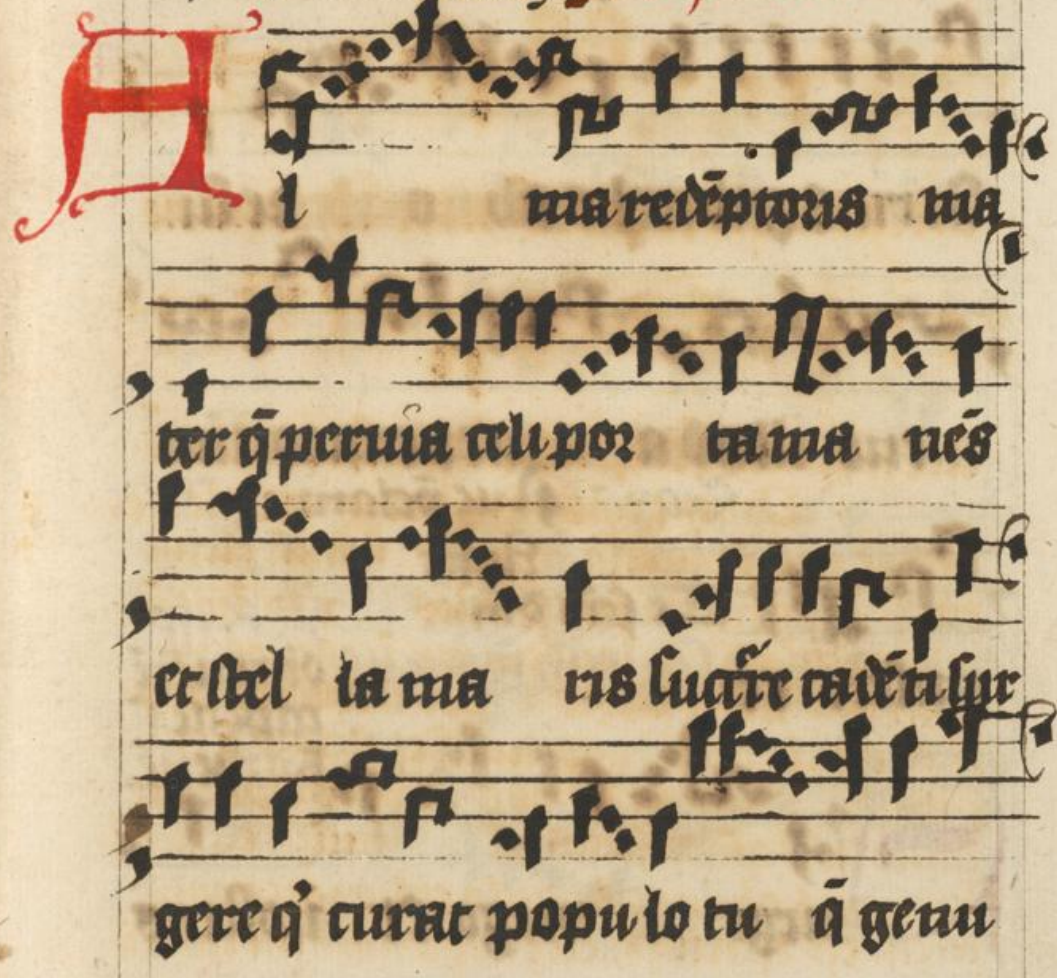 Al ma redēptoris ma
ter q̄ peruia celi por ta ma nēs
et stel la ma ris succ̄re cadēti sur
gere qͥ curat populo tu q̄ genui